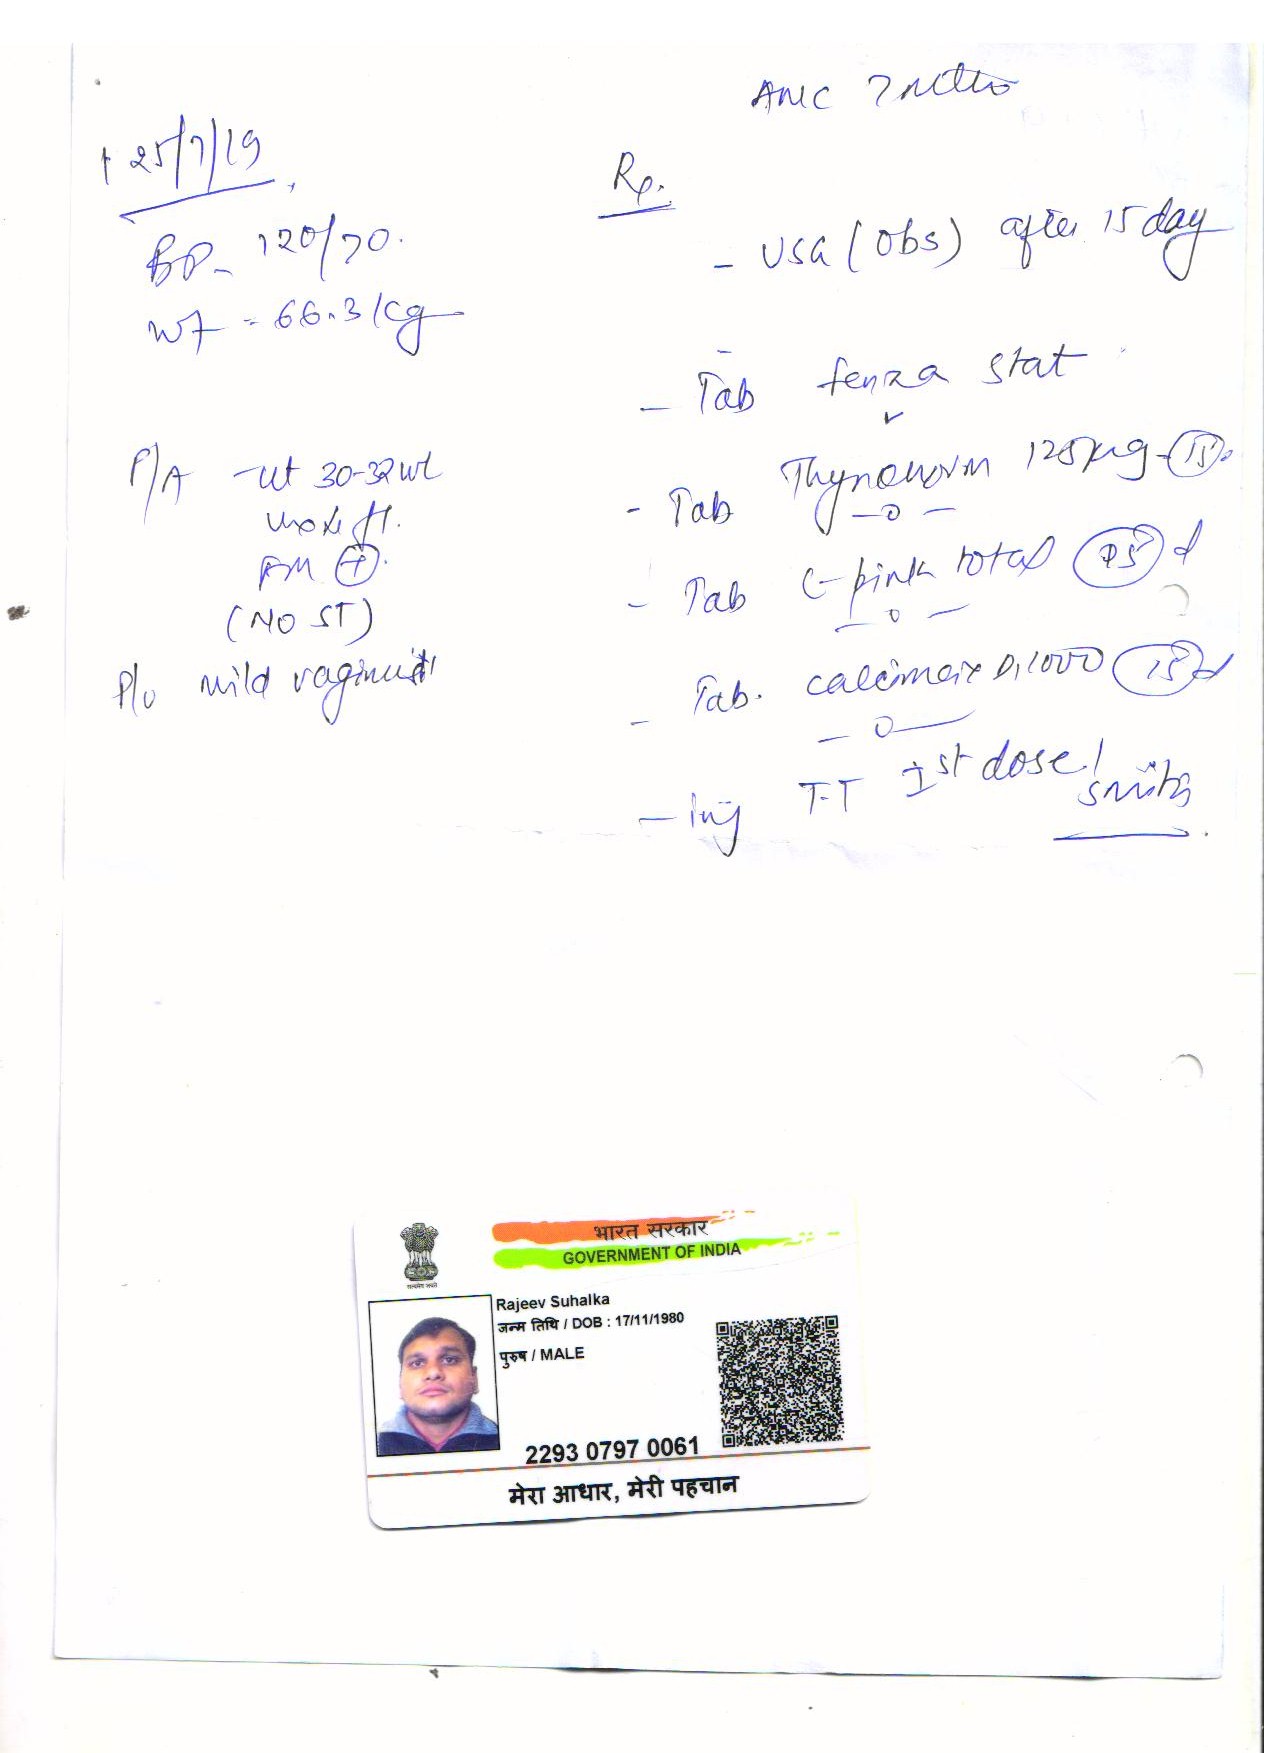 ANC 7 mths
25/7/19
BP - 120/70.
Wt - 66.3 kg
P/A - ut 30-32 wk
FM +
(NO ST)
P/V mild vaginitis
Rp.
- USG (Obs) after 15 day
- Tab fenza stat
- Tab Thyronorm 125µg - 15
- Tab C-pink total 15 d
- Tab. D, 1000 15 d
- inj T.T 1st dose /
भारत सरकार
GOVERNMENT OF INDIA
सत्यमेव जयते
Rajeev Suhalka
जन्म तिथि / DOB : 17/11/1980
पुरुष / MALE
2293 0797 0061
मेरा आधार, मेरी पहचान